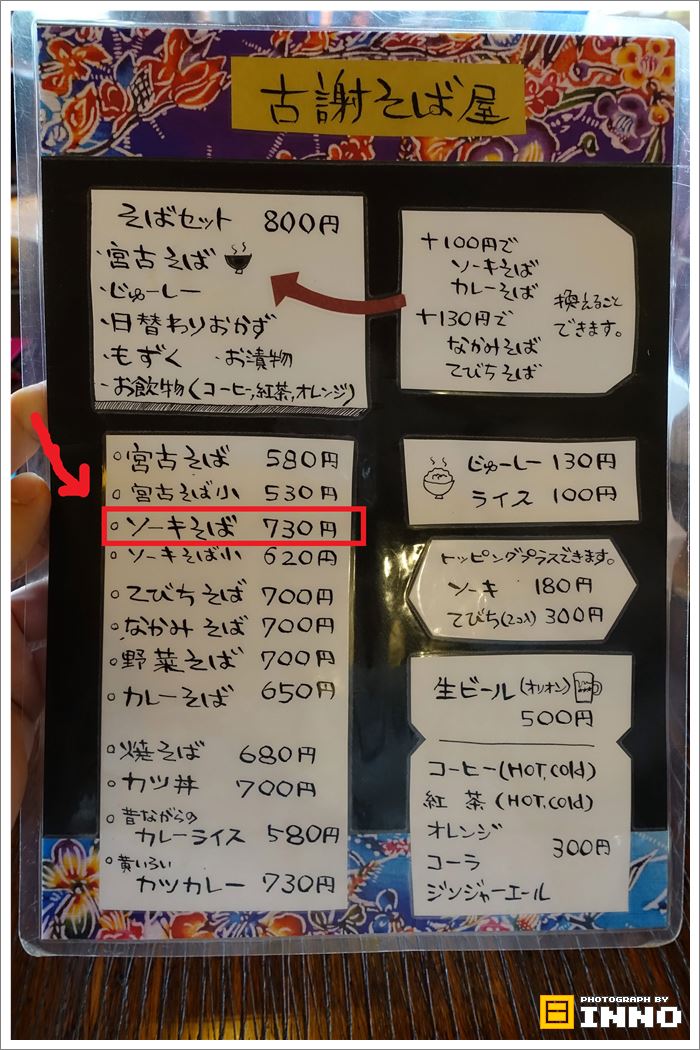 古謝そば屋
そばセット 800円
・宮古そば
・じゅーしー
・日替わりおかず
・もずく ・お漬物
・お飲物(コーヒー,紅茶,オレンジ)
+100円で
ソーキそば
カレーそば
+130円で
なかみそば
てびちそば
換えること
できます。
○宮古そば 580円
○宮古そば小 530円
○ソーキそば 730円
○ソーキそば小 620円
○てびちそば 700円
○なかみそば 700円
○野菜そば 700円
○カレーそば 650円
○焼そば 680円
○カツ丼 700円
○昔ながらの
カレーライス 580円
○黄いろい
カツカレー 730円
じゅーしー 130円
ライス 100円
トッピングプラスできます。
ソーキ 180円
てびち(2コ入) 300円
生ビール(オリオン)
500円
コーヒー(HOT,Cold)
紅茶(HOT,Cold)
オレンジ
コーラ 300円
ジンジャーエール
PHOTOGRAPH BY
INNO